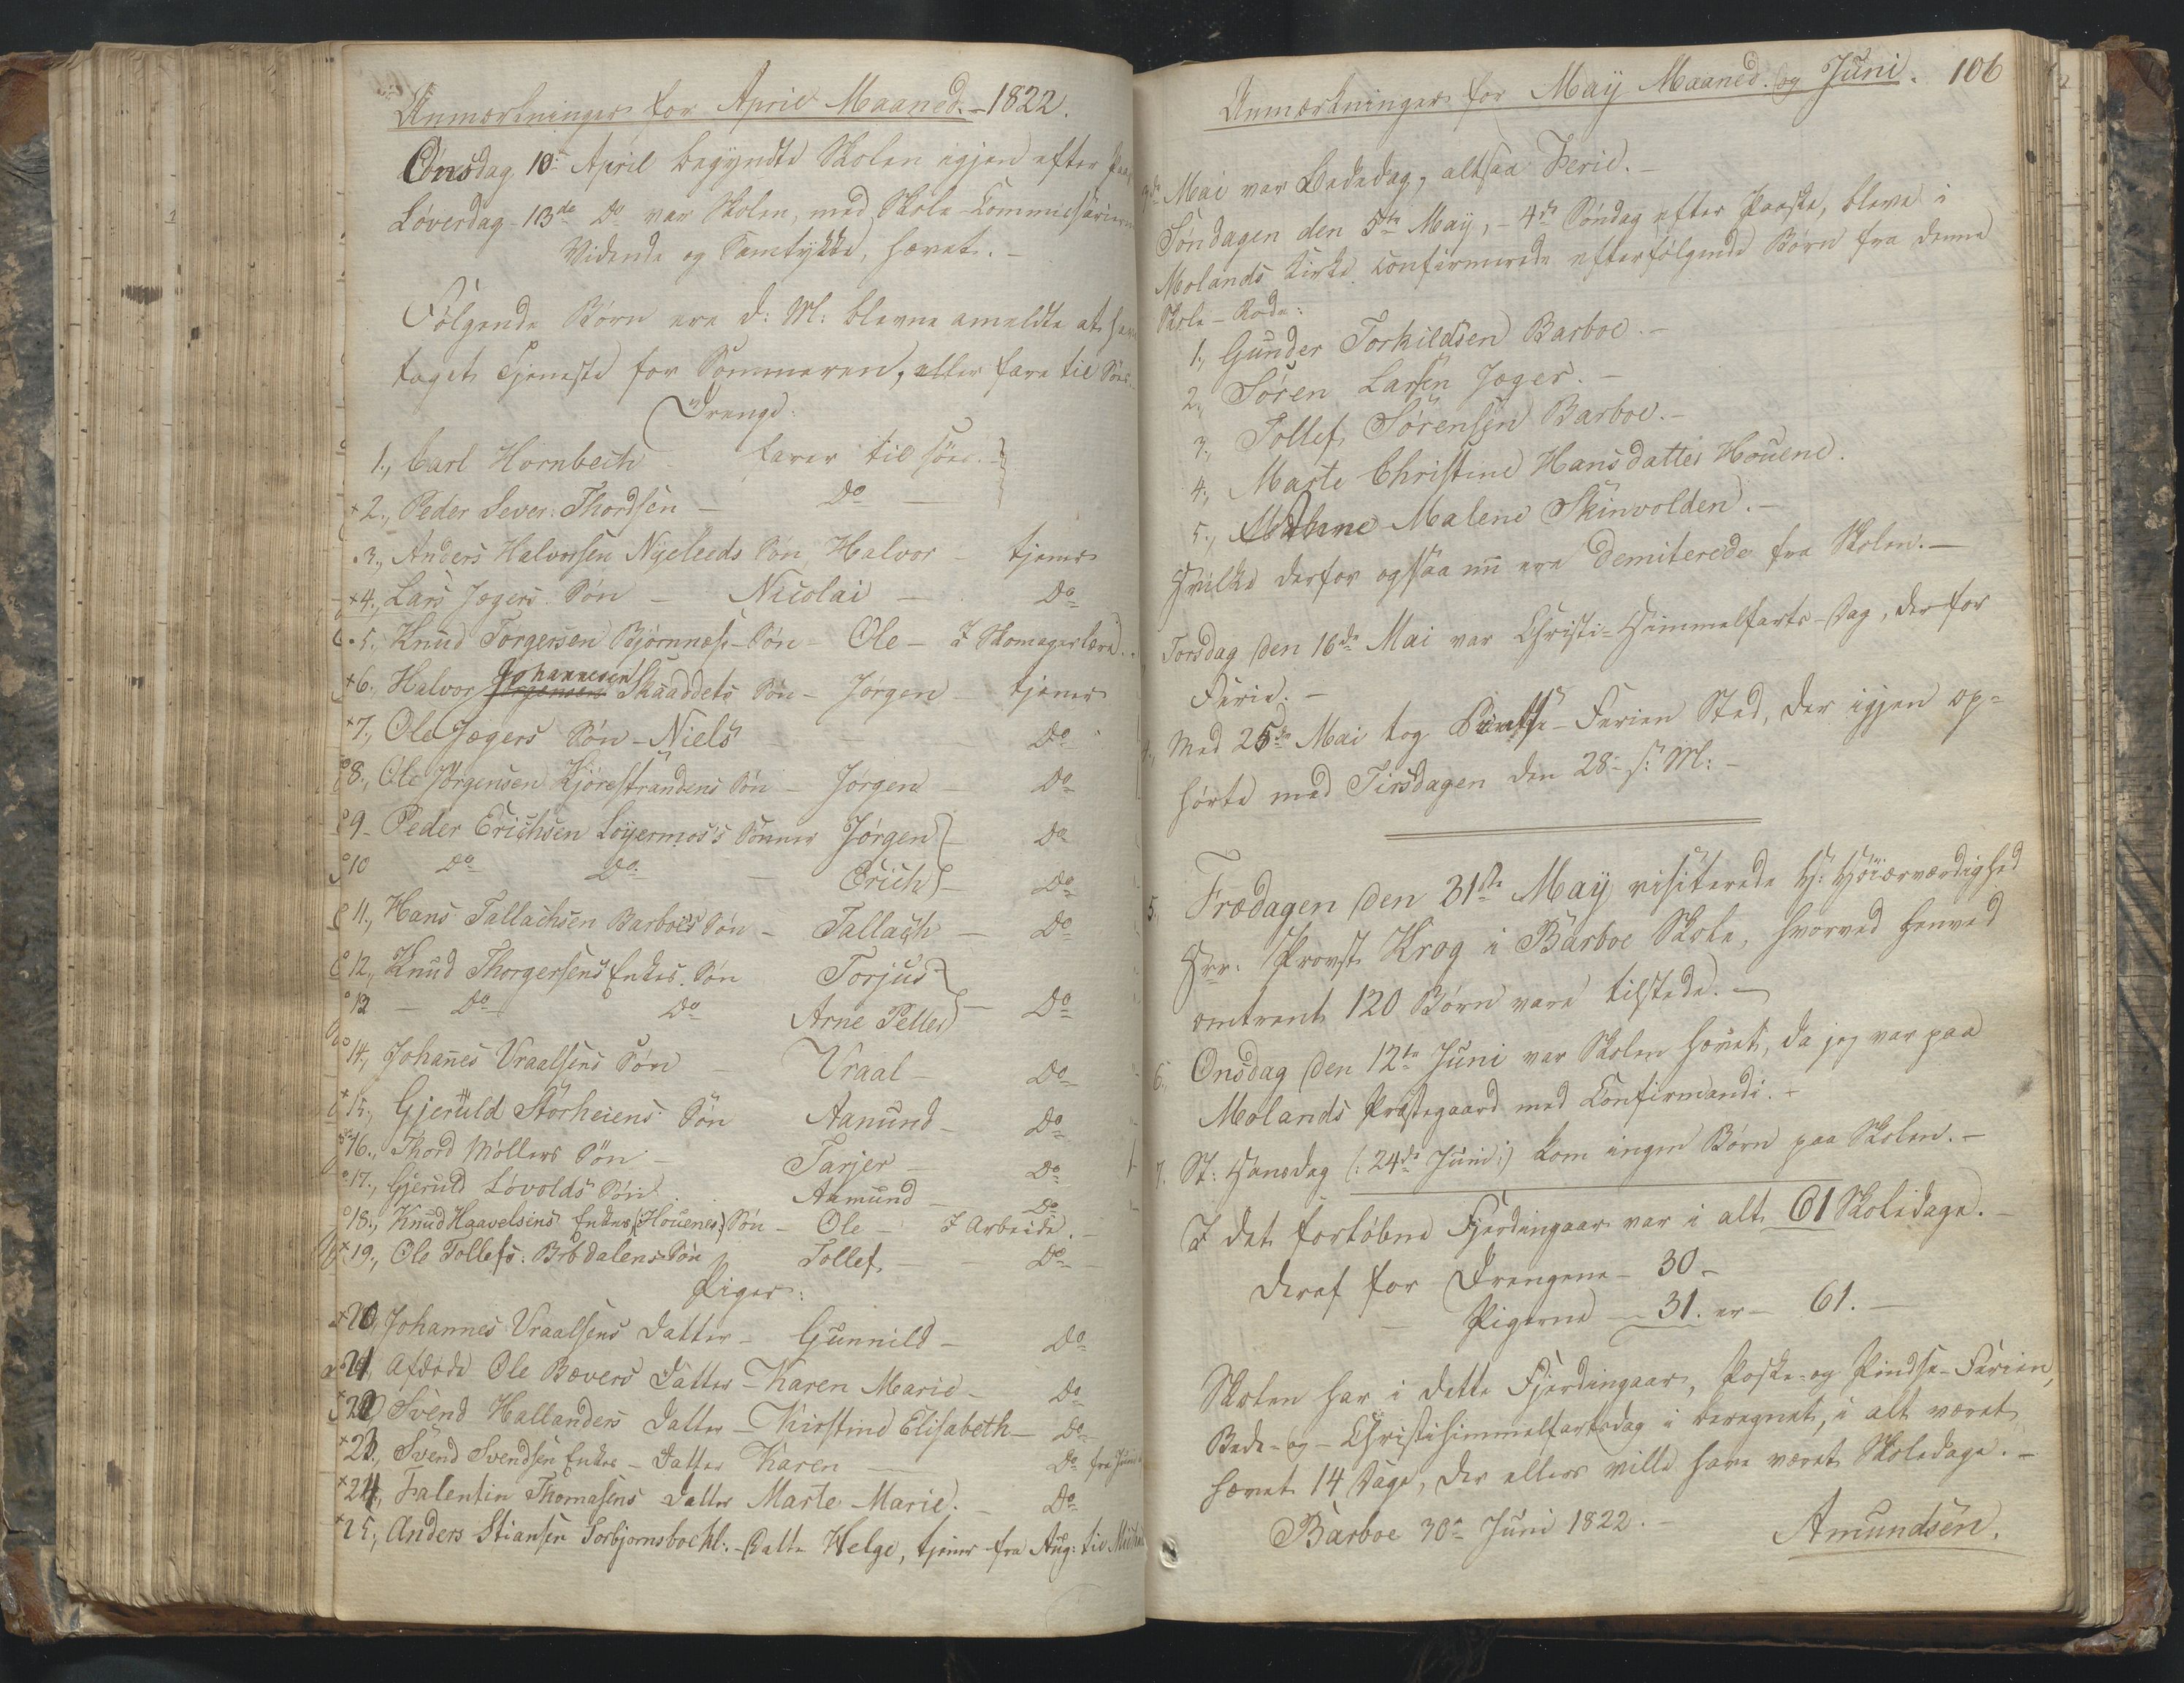 Anmærkninger for April Maaned. - 1822.
Onsdag 10 April begyndte Skolen igjen efter
Löverdag - 13de Do var Skolen, med Skole-Commissairernes
Vidende og Samtykke, hævet. -
Følgende Børn ere d: M: blevne anmeldte at have
taget Tjeneste for Sommeren, eller fare til Söes.
Drenge:
1., Carl Hornbech - farer til söes.
+2., Peder Sever: Thordsen - Do -
.3., Anders Halvorsen Nyeleeds Søn, Halvor - tjener
+4., Lars Jægers Søn - Nicolai - Do
5., Knud Torgersen Bjørnnæs - Søn - Ole - I Skomagerlære.
+6., Halvor Johannesen Skaaddets Søn - Jørgen - tjener
+7., Ole Jægers Søn - Niels - Do
8., Ole Jørgensen Kjørestrandens Søn - Jørgen - Do
9- Peder Erichsen Løyermos's Sønner Jørgen - Do
10 Do Do - Erich - Do
11., Hans Tallachsen Barboes Søn - Tallach - Do
12., Knud Thorgersens Enkes Søn Torjus
13 - Do Do Arne Petter - Do
14., Johanes Vraalsens Søn - Vraal - Do
+15., Gjeruld Störheiens Søn Aanund - Do
16., Thord Möllers Søn - Tarjer - Do
17., Gjeruld Løvolds Søn Aamund - Do
18., Knud Haavelsens Enkes (Houenes) Søn - Ole - I Arbeide. -
+19., Ole Tollefs: Brbdalens Søn Tollef - Do
Piger:
+20, Johannes Vraalsens Datter - Gunnild - Do
21, Afdøde Ole Bævers Datter - Karen Marie - Do
+22 Svend Hallanders Datter - Kirstine Elisabeth - Do
+23., Svend Svendsen Enkes - Datter Karen - Do fra Juni
+24., Falentin Thomasens Datter Marte Marie. - Do
+25., Anders Stiansen Torbjornsboehl: - Datt. Helge, tjener fra Aug: til
Anmærkninger for May Maaned. og Juni. 106
3de Mai var Bededag, altsaa Ferie. -
Søndagen den 5te May, - 4de Søndag efter Paaske, bleve i
Molands Kirke confirmerede efterfølgende Børn fra denne
Skole-Rode:
1., Gunder Torkildsen Barboe. -
2., Søren Larsen Jæger. -
3., Tollef Sørensen Barboe. -
4., Marte Christine Hansdatter Houene.
5., Malene Skinvolden. -
Hvilke derfor ogsaa nu ere demiterede fra Skolen. -
Torsdag den 16de Mai var Christi-Himmelfarts-Dag, derfor
Ferie. -
4., Med 25de Mai tog Pintse-Ferien Sted, der igjen op-
hørte med Tirsdagen den 28 s: M: -
5., Fredagen den 31te May visiterede H: Höiærværdighed
Hrr. Provst Krog i Barboe Skole, hvorved henved
omtrent 120 Børn vare tilstede. -
6., Onsdag den 12te Juni var Skolen hævet, da jeg var paa
Molands Præstegaard med Confirmandi. -
7. St: Hansdag (: 24de Juni :) kom ingen Børn paa Skolen. -
I det forløbne Fjerdingaar var i alt 61 Skoledage. -
deraf for Drengene - 30 -
- Pigerne - 31. er - 61. -
Skolen har i dette Fjerdingaar, Paaske- og Pindse-Ferien,
Bede- og - Christihimmelfartsdag i beregnet, i alt været
hævet 14 Dage, der ellers ville have været Skoledage. -
Barboe 30te Juni 1822. -
Amundsen.